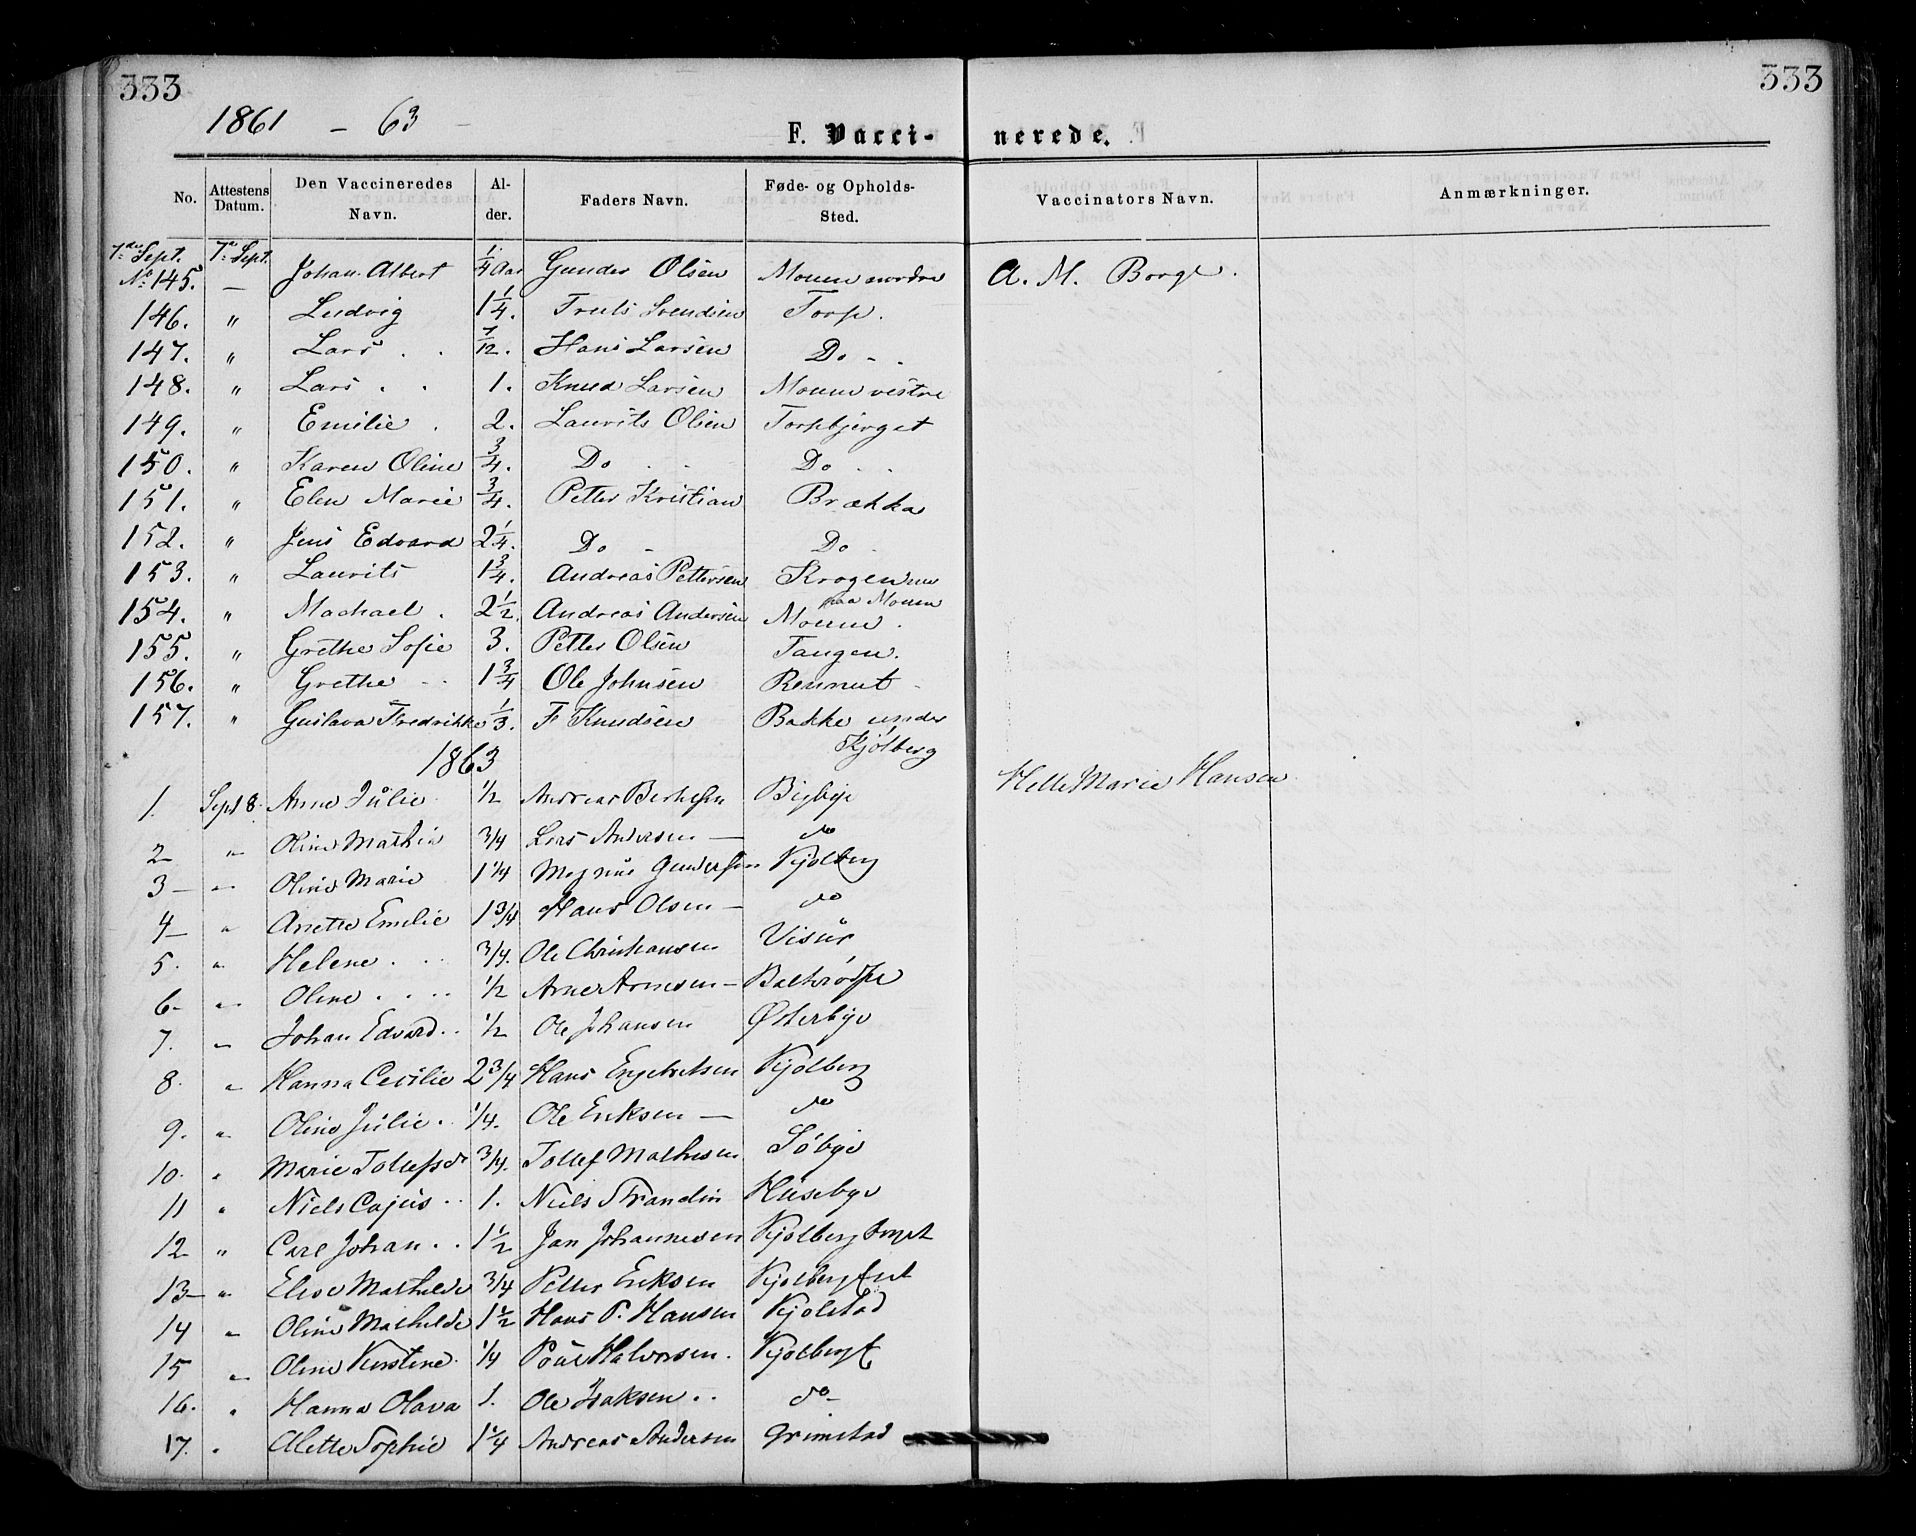 333 333
1861 - 63
F. Vacci- nerede.
No. Attestens Datum. Den Vaccineredes Navn. Al-der. Faders Navn. Føde- og Opholds-Sted. Vaccinators Navn. Anmærkninger.
7de Sept. 7de Sept.
No 145. — Johan Albert 1/4 Aar Gunder Olsen Moum nordre A. M. Borge.
146. " Ludvig 1 1/4. Truls Svendsen Torp.
147. " Lars . . 7/12. Hans Larsen Do - .
148. " Lars . . 1. Knud Larsen Moum vestre
149. " Emilie . 2. Laurits Olsen Torpbjerget
150. " Karen Oline 3/4. Do . . Do . .
151. " Elen Marie 3/4. Petter Kristian Brække
152. " Jens Edvard 2 1/4. Do - Do .
153. " Laurits 1 3/4. Andreas Pettersen Krogen
paa Moum
154. " Machael . 2 1/2. Andreas Andersen Moum.
155. " Grethe Sofie 3. Petter Olsen Tangen.
156. " Grethe - - 1 3/4 Ole Johnsen Rennut -
157. " Gustava Fredrikke 1/3. F Knudsen Bakke under
Kjølberg
1863
1. Sept 8. Anne Julie 1/2 Andreas Bigbye Helle Marie Hansen
2- " Oline Mathia 3/4 Lars Andersen — do
3 — " Oline Marie 1 1/4 Magnus Gundersen Kjølberg
4— " Anette Emilie 1 3/4 Hans Olsen — do
5. " Helene . . . 3/4. Ole Christiansen Visür
6- " Oline . . . . 1/2 Arne Arnesen —
7. " Johan Edvard . . 1/2 Ole Johansen Østerbye
8. " Hanna Cecilie 2 3/4 Hans Engebretsen Kjølberg
9. " Oline Julie . . 1/4. Ole Eriksen — do
10. " Marie Tollefsdr 3/4. Tollef Mathesen Søbye
11 " Niels Cajus . . 1. Niels Strandin Husebye
12 " Carl Johan . . 1 1/2 Jan Johannesen Kjølberg
13- " Elise Mathilde 3/4 Petter Eriksen
14 " Oline Mathilde 1 1/2 Hans P. Hansen Kjølstad
15 " Oline Kirstine . 1/4 Poul Halvorsen .
16. " Hanna Olava 1. Ole Isaksen . . do -
17. " Alette Sophie 1 1/4 Andreas Andersen Grimstad